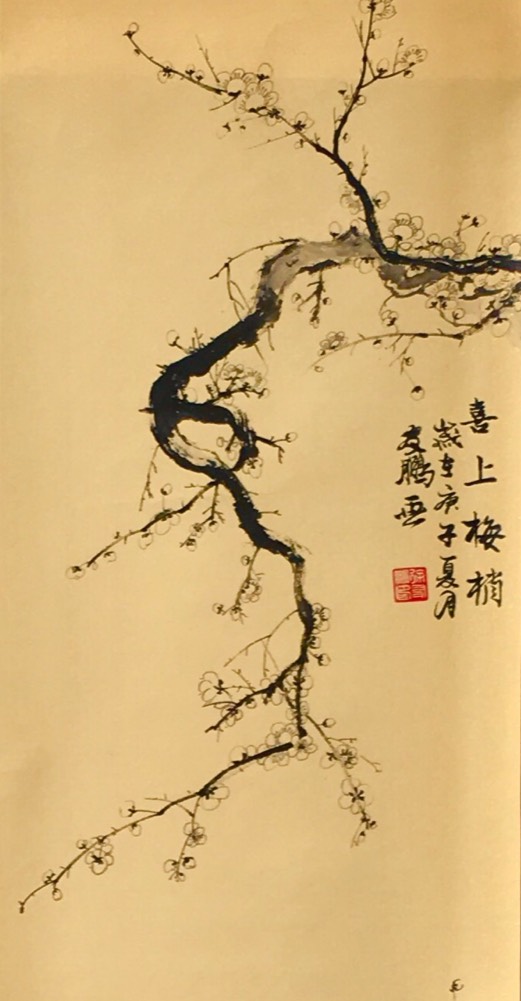 喜上梅梢
歲在庚子夏月
友鵬画